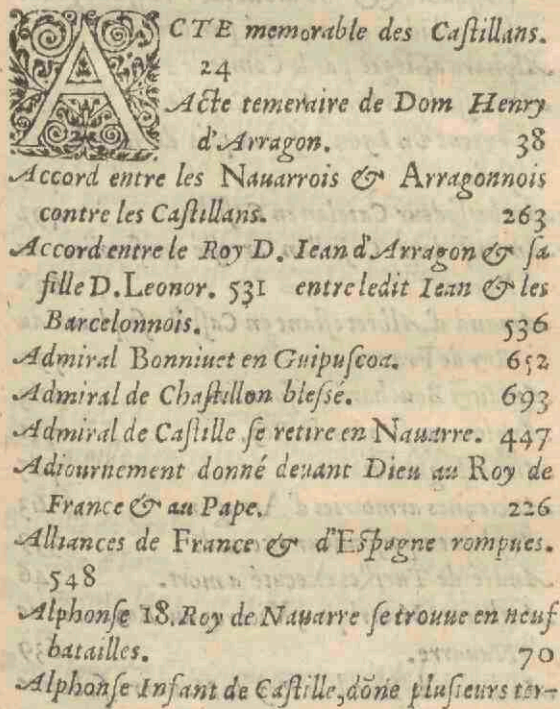 ACTE memorable des Caſtillans.
24
Acte temeraire de Dom Henry
d'Arragon. 38
Accord entre les Nauarrois & Arragonnois
contre les Caſtillans. 263
Accord entre le Roy D. Iean d'Arragon & ſa
fille D. Leonor. 531 entre ledit Iean & les
Barcelonnois. 536
Admiral Bonniuet en Guipuſcoa. 652
Admiral de Chaſtillon bleſſé. 693
Admiral de Caſtille ſe retire en Nauarre. 447
Adiournement donné deuant Dieu au Roy de
France & au Pape. 226
Alliances de France & d'Eſpagne rompues.
548
Alphonſe 18. Roy de Nauarre ſe trouue en neuf
batailles. 70
Alphonſe Infant de Caſtille, dōne pluſieurs ter-